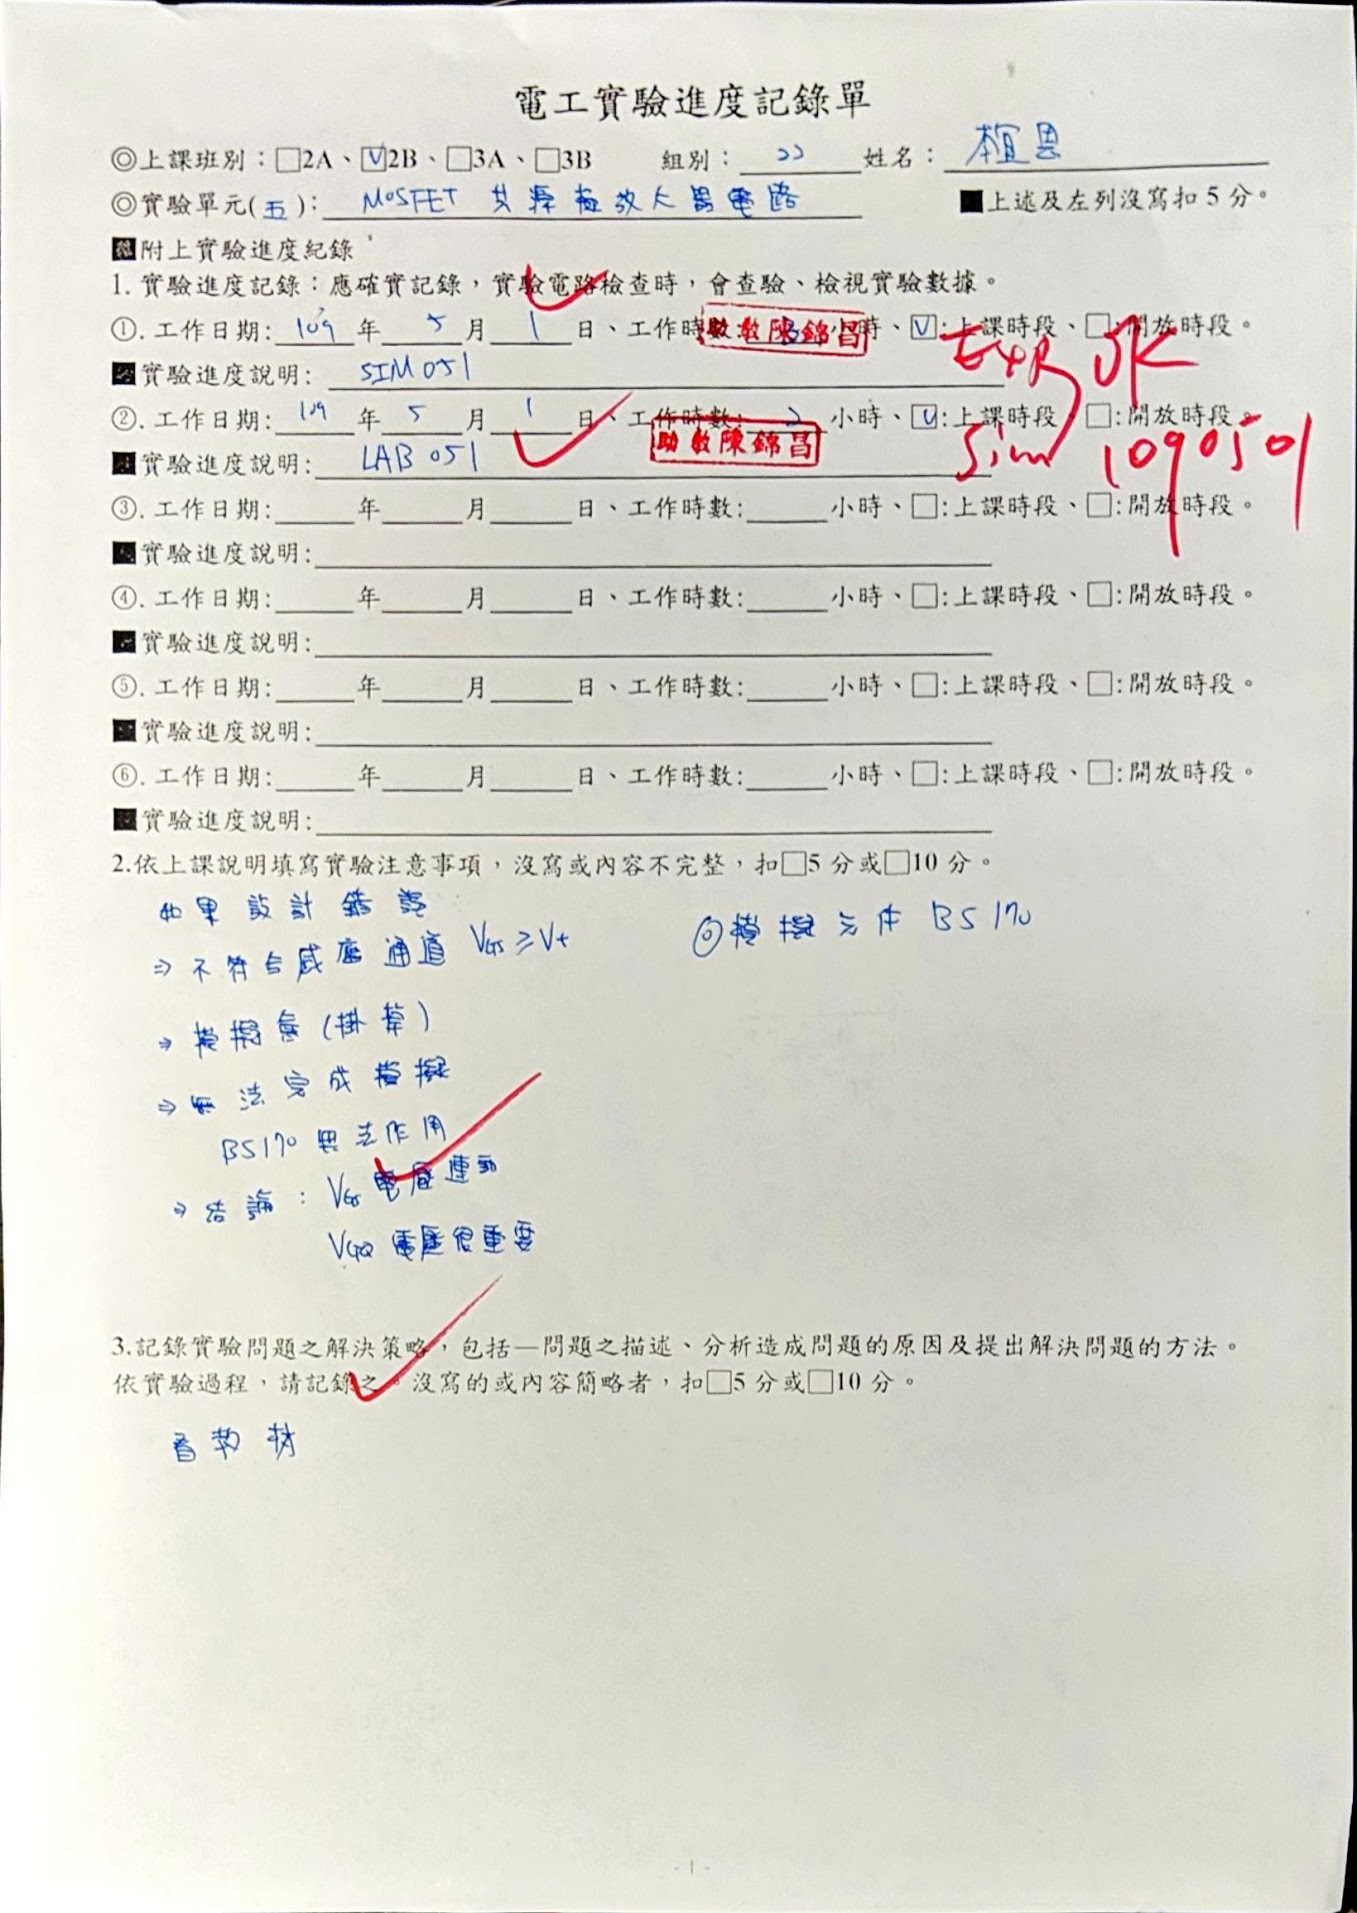 電工實驗進度記錄單
◎上課班別：□2A、☑2B、□3A、□3B 組別： 22 姓名：
◎實驗單元(五)： MOSFET 共源極放大器電路 ■上述及左列沒寫扣5分。
附上實驗進度紀錄
1. 實驗進度記錄：應確實記錄，實驗電路檢查時，會查驗、檢視實驗數據。
①. 工作日期: 109 年 5 月 1 日、工作時數: 小時、☑:上課時段、□:開放時段。
助教陳錦昌
EXP OK
實驗進度說明: SIM051
②. 工作日期: 109 年 5 月 1 日、工作時數: 2 小時、☑:上課時段、□:開放時段。
助教陳錦昌
Sim 1090501
實驗進度說明: LAB 051
③. 工作日期: 年 月 日、工作時數: 小時、□:上課時段、□:開放時段。
實驗進度說明:
④. 工作日期: 年 月 日、工作時數: 小時、□:上課時段、□:開放時段。
實驗進度說明:
⑤. 工作日期: 年 月 日、工作時數: 小時、□:上課時段、□:開放時段。
實驗進度說明:
⑥. 工作日期: 年 月 日、工作時數: 小時、□:上課時段、□:開放時段。
實驗進度說明:
2.依上課說明填寫實驗注意事項，沒寫或內容不完整，扣□5分或□10分。
如果設計錯誤
◎模擬元件 BS170
⇒ 不符合感應通道 VGS≥Vt
⇒ 模擬(掛掉)
⇒ 無法完成模擬
BS170 無法作用
⇒ 結論： VGS 電壓
VGQ 電壓很重要
3.記錄實驗問題之解決策略，包括—問題之描述、分析造成問題的原因及提出解決問題的方法。
依實驗過程，請記錄之。沒寫的或內容簡略者，扣□5分或□10分。
看教材
- 1 -